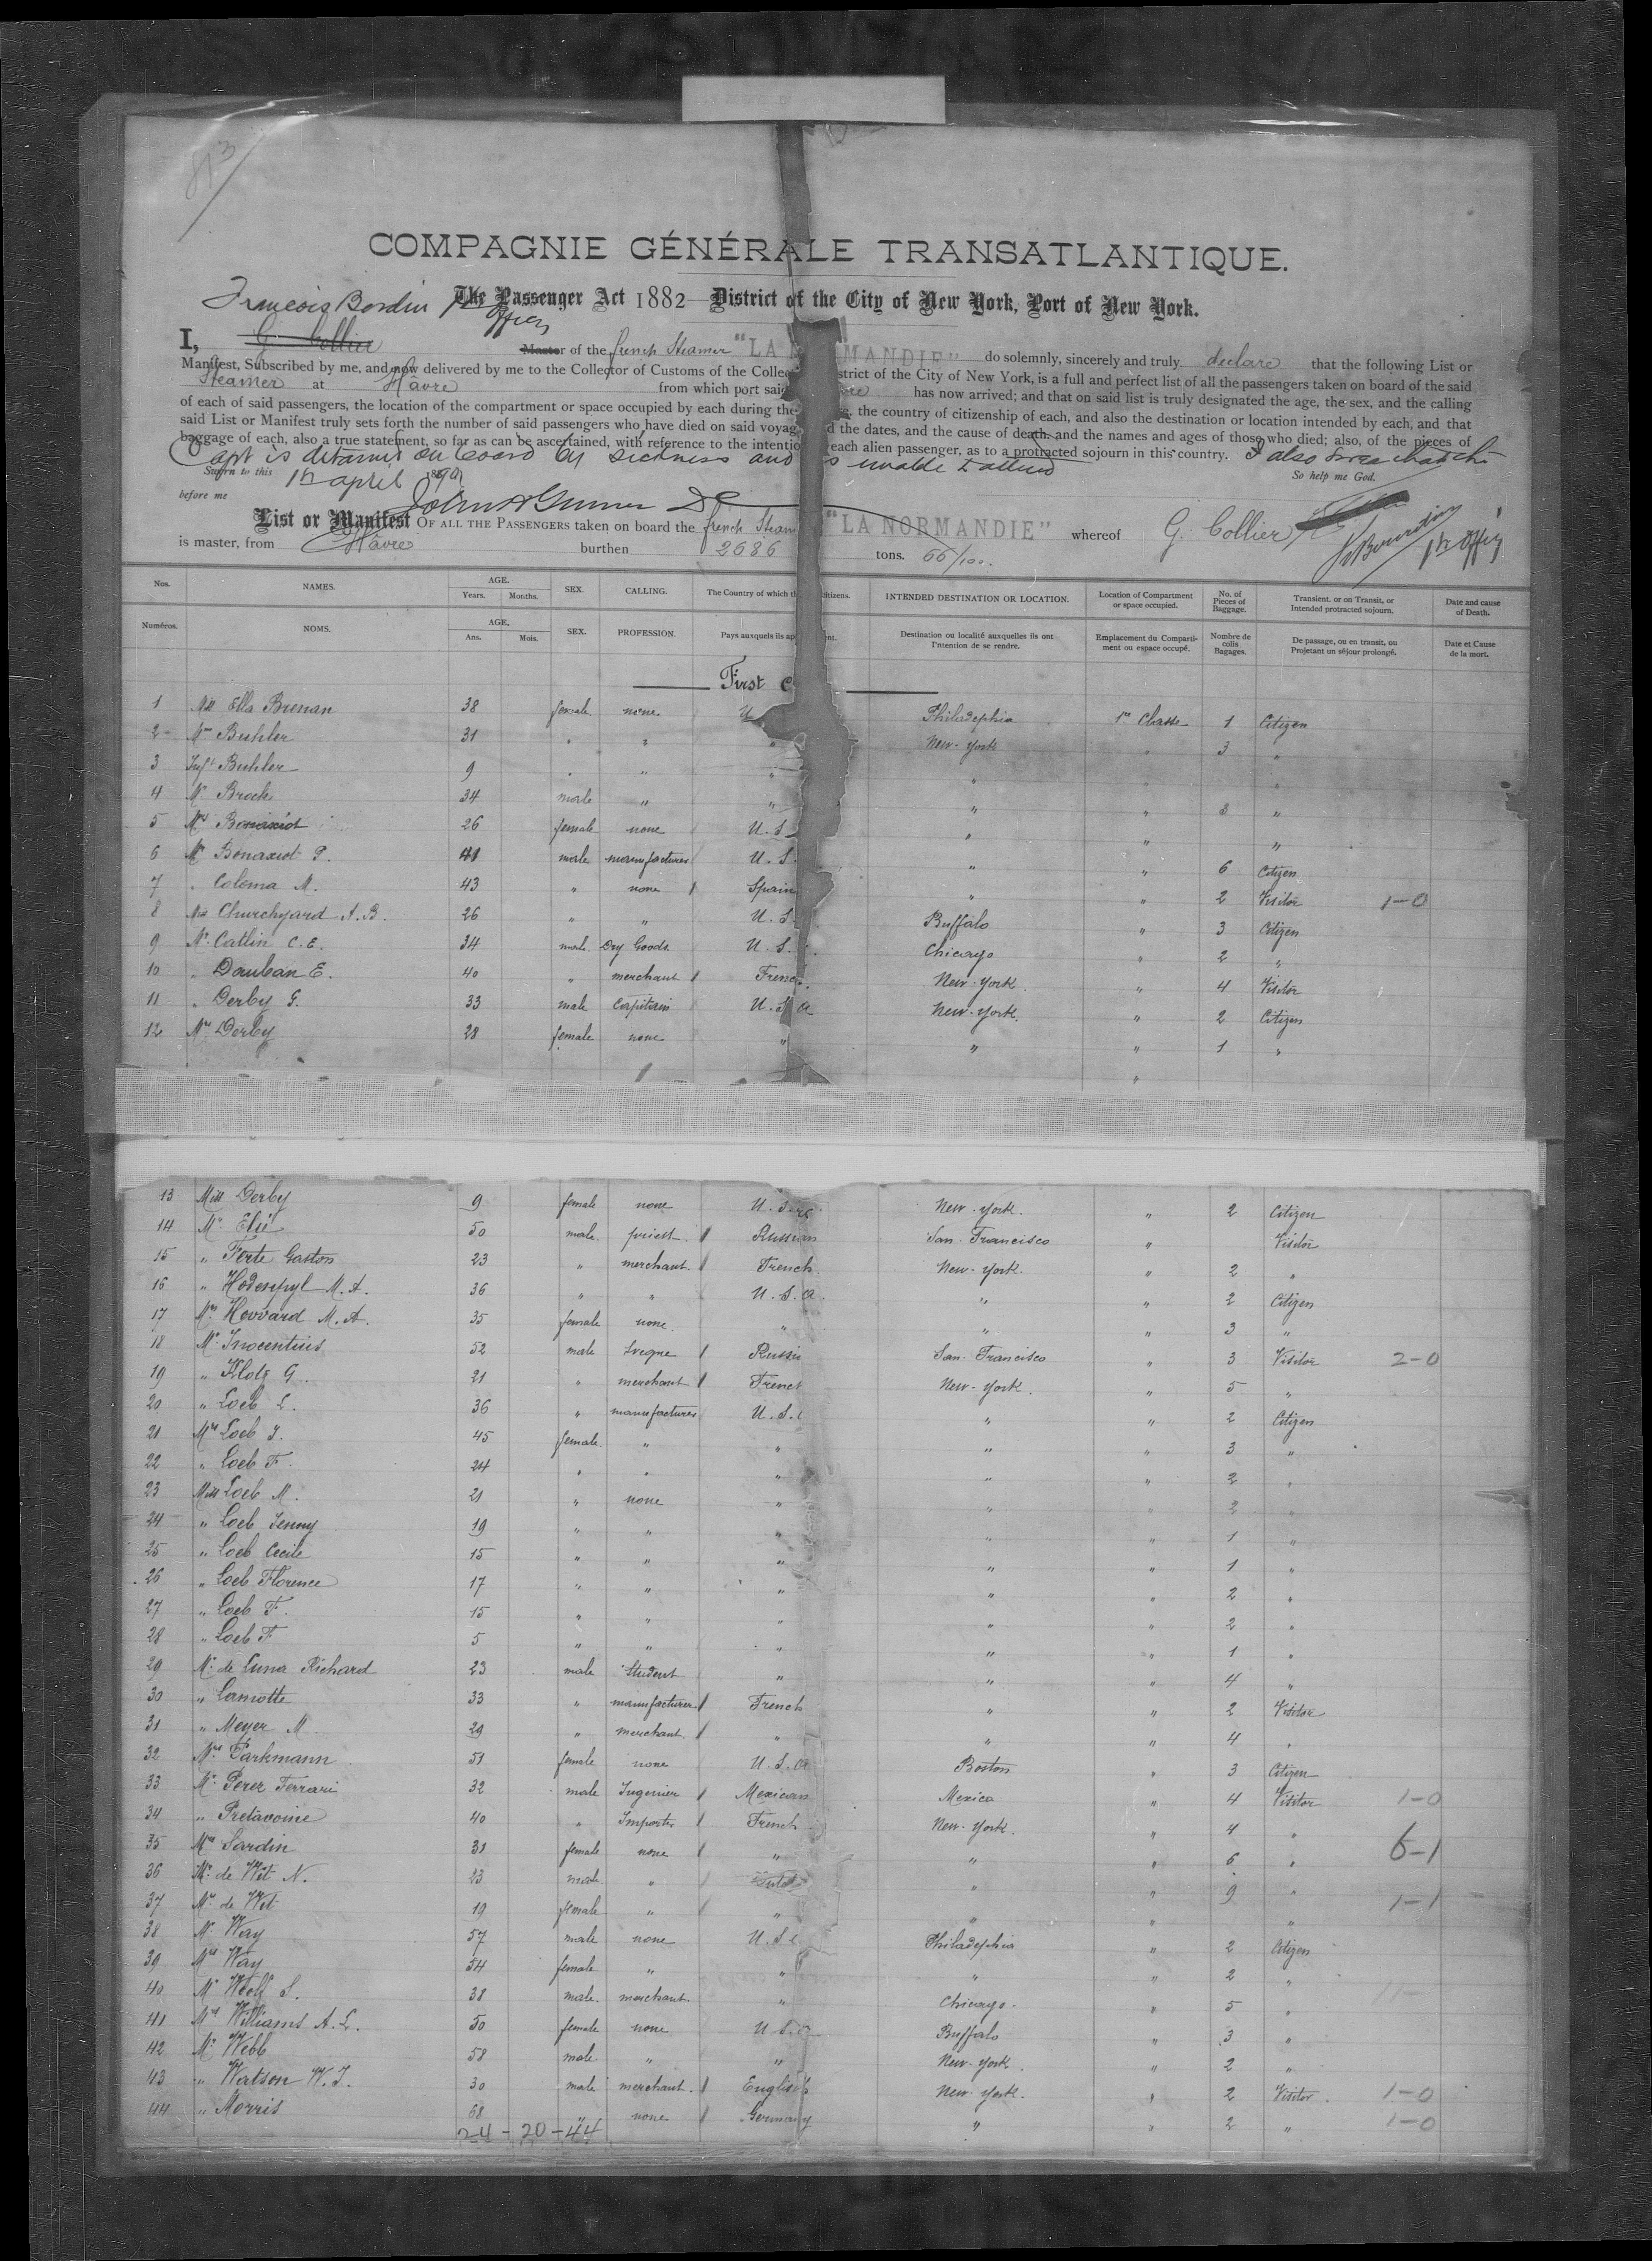 813
COMPAGNIE GÉNÉRALE TRANSATLANTIQUE.
The Passenger Act 1882 District of the City of New York, Port of New York.
Francois Bordin 1st Officer
I, G. Collier Master of the french Steamer "LA NORMANDIE" do solemnly, sincerely and truly declare that the following List or
Manifest, Subscribed by me, and now delivered by me to the Collector of Customs of the Collec strict of the City of New York, is a full and perfect list of all the passengers taken on board of the said
Steamer at Hâvre from which port said has now arrived; and that on said list is truly designated the age, the sex, and the calling
of each of said passengers, the location of the compartment or space occupied by each during the the country of citizenship of each, and also the destination or location intended by each, and that
said List or Manifest truly sets forth the number of said passengers who have died on said voyag d the dates, and the cause of death, and the names and ages of those who died; also, of the pieces of
baggage of each, also a true statement, so far as can be ascertained, with reference to the intentio each alien passenger, as to a protracted sojourn in this country. I also swear that the
Capt is detained on board by sickness and is unable to attend So help me God.
Sworn to this 1st april 1890
before me
List or Manifest OF ALL THE PASSENGERS taken on board the french Steam "LA NORMANDIE" whereof G. Collier
is master, from Hâvre burthen 2686 tons. 66/100. 1st Offic
Nos. NAMES. AGE. Years. Months. SEX. CALLING. The Country of which th citizens. INTENDED DESTINATION OR LOCATION. Location of Compartment or space occupied. No. of Pieces of Baggage. Transient, or on Transit, or Intended protracted sojourn. Date and cause of Death.
Numéros. NOMS. AGE. Ans. Mois. SEX. PROFESSION. Pays auxquels ils ap ent. Destination ou localité auxquelles ils ont l'intention de se rendre. Emplacement du Comparti- ment ou espace occupé. Nombre de colis Bagages. De passage, ou en transit, ou Projetant un séjour prolongé. Date et Cause de la mort.
First C
1 Miss Ella Brenan 38 female none U Philadephia 1re Classe 1 Citizen
2 Mrs Buhler 31 " " " New-York " 3 "
3 Inft Buhler 9 " " " " " "
4 Mr Brock 34 male " " " " 3 "
5 Mrs Bonaxiot 26 female none U.S " " "
6 Mr Bonaxiot P. 41 male manufactures U.S. " " 6 Citizen
7 " Coloma M. 43 " none Spain " " 2 Visitor 1-0
8 Mrs Churchyard A.B. 26 " " U.S Buffalo " 3 Citizen
9 Mr Catlin C.E. 34 male Dry Goods U.S. Chicago " 2 "
10 " Dauban E. 40 " merchant French New-York " 4 Visitor
11 " Derby G. 33 male Capitain U.S.a New-York. " 2 Citizen
12 Mrs Derby 28 female none " " " 1 "
13 Miss Derby 9 female none U.S.a New-York. " 2 Citizen
14 Mr Elie 50 male priest Russian San-Francisco " Visitor
15 " Ferte Gaston 23 " merchant French New-York. " 2 "
16 " Hodenpyl M.A. 36 " " U.S.a. " " 2 Citizen
17 Mrs Hovvard M.A. 35 female none. " " " 3 "
18 Mr Inocentius 52 male Russie San-Francisco " 3 Visitor 2-0
19 " Klotz G. 21 " merchant French New-York. " 5 "
20 " Loeb L. 36 " manufactures U.S. " " 2 Citizen
21 Mrs Loeb J. 45 female " " " " 3 "
22 " Loeb F. 24 " " " " " 2 "
23 Miss Loeb M. 21 " none " " " 2 "
24 " Loeb Jenny 19 " " " " " 1 "
25 " Loeb Cecile 15 " " " " " 1 "
26 " Loeb Florence 17 " " " " " 2 "
27 " Loeb F. 15 " " " " " 2 "
28 " Loeb F 5 " " " " " 1 "
29 Mr de Luna Richard 23 male Student " " " 4 "
30 " Lamotte 33 " manufacturer French " " 2 Visitor
31 " Meyer M 29 " merchant " " " 4 "
32 Mrs Parkmann 51 female none U.S.a Boston " 3 Citizen
33 Mr Perez Ferrari 32 male Ingenier Mexican Mexico " 4 Visitor 1-0
34 " Pretavoine 40 " Importer French New-York. " 4 "
35 Mrs Sardin 31 female none " " " 6 " 6-1
36 Mr de Wit N. 23 male " " " 9 " 1-1
37 Mrs de Wit 19 female " " " " "
38 Mr Way 57 male none U.S.a Philadephia " 2 Citizen
39 Mrs Way 54 female " " " " 2 "
40 Mr Woolf S. 38 male merchant " Chicago. " 5 "
41 Mrs Williams A.L. 50 female none U.S.a Buffalo " 3 "
42 Mr Webb 58 male " " New-York. " 2 "
43 " Watson W.J. 30 male merchant. English New-York. " 2 Visitor 1-0
44 " Morris 68 " none Germany " " 2 " 1-0
24-20-44